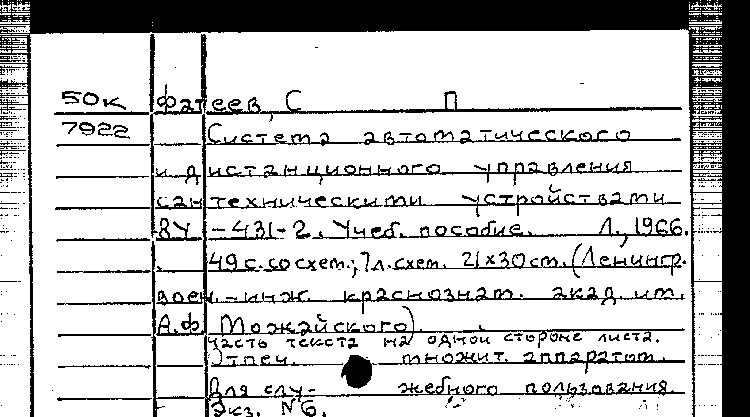 50к Фатеев, С П
7922 Система автоматического
и дистанционного управления
сантехническими устройствами
ВУ-431-2. Учеб. пособие. Л., 1966.
49 с. со схем.; 7 л. схем. 21×30 см. (Ленингр.
воен.-инж. краснознам. акад. им.
А.Ф. Можайского).
Часть текста на одной стороне листа.
Отпеч. множит. аппаратом.
Для служебного пользования.
Экз. №6.